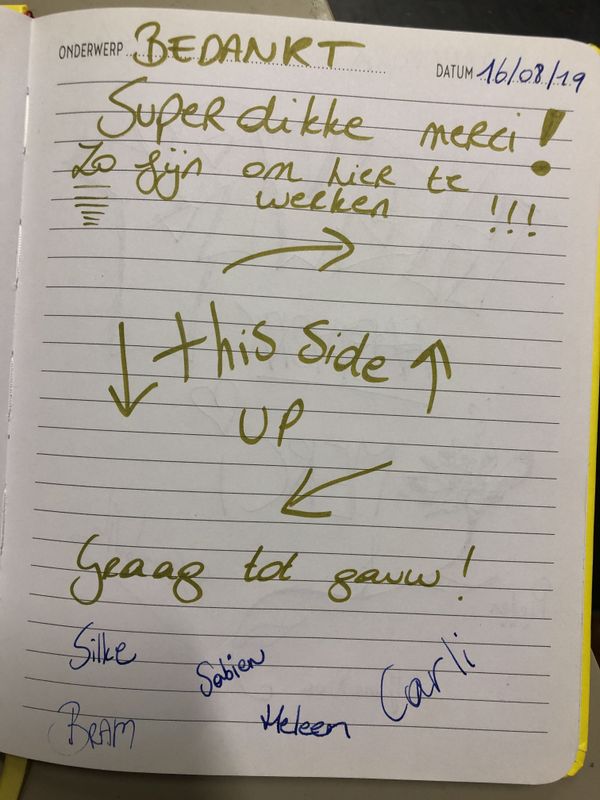 ONDERWERP BEDANKT
DATUM 16/08/19
Super dikke merci!
Zo fijn om hier te
werken !!!
this side
UP
Graag tot gauw!
Silke
Sabien
Carli
BRAM
Heleen